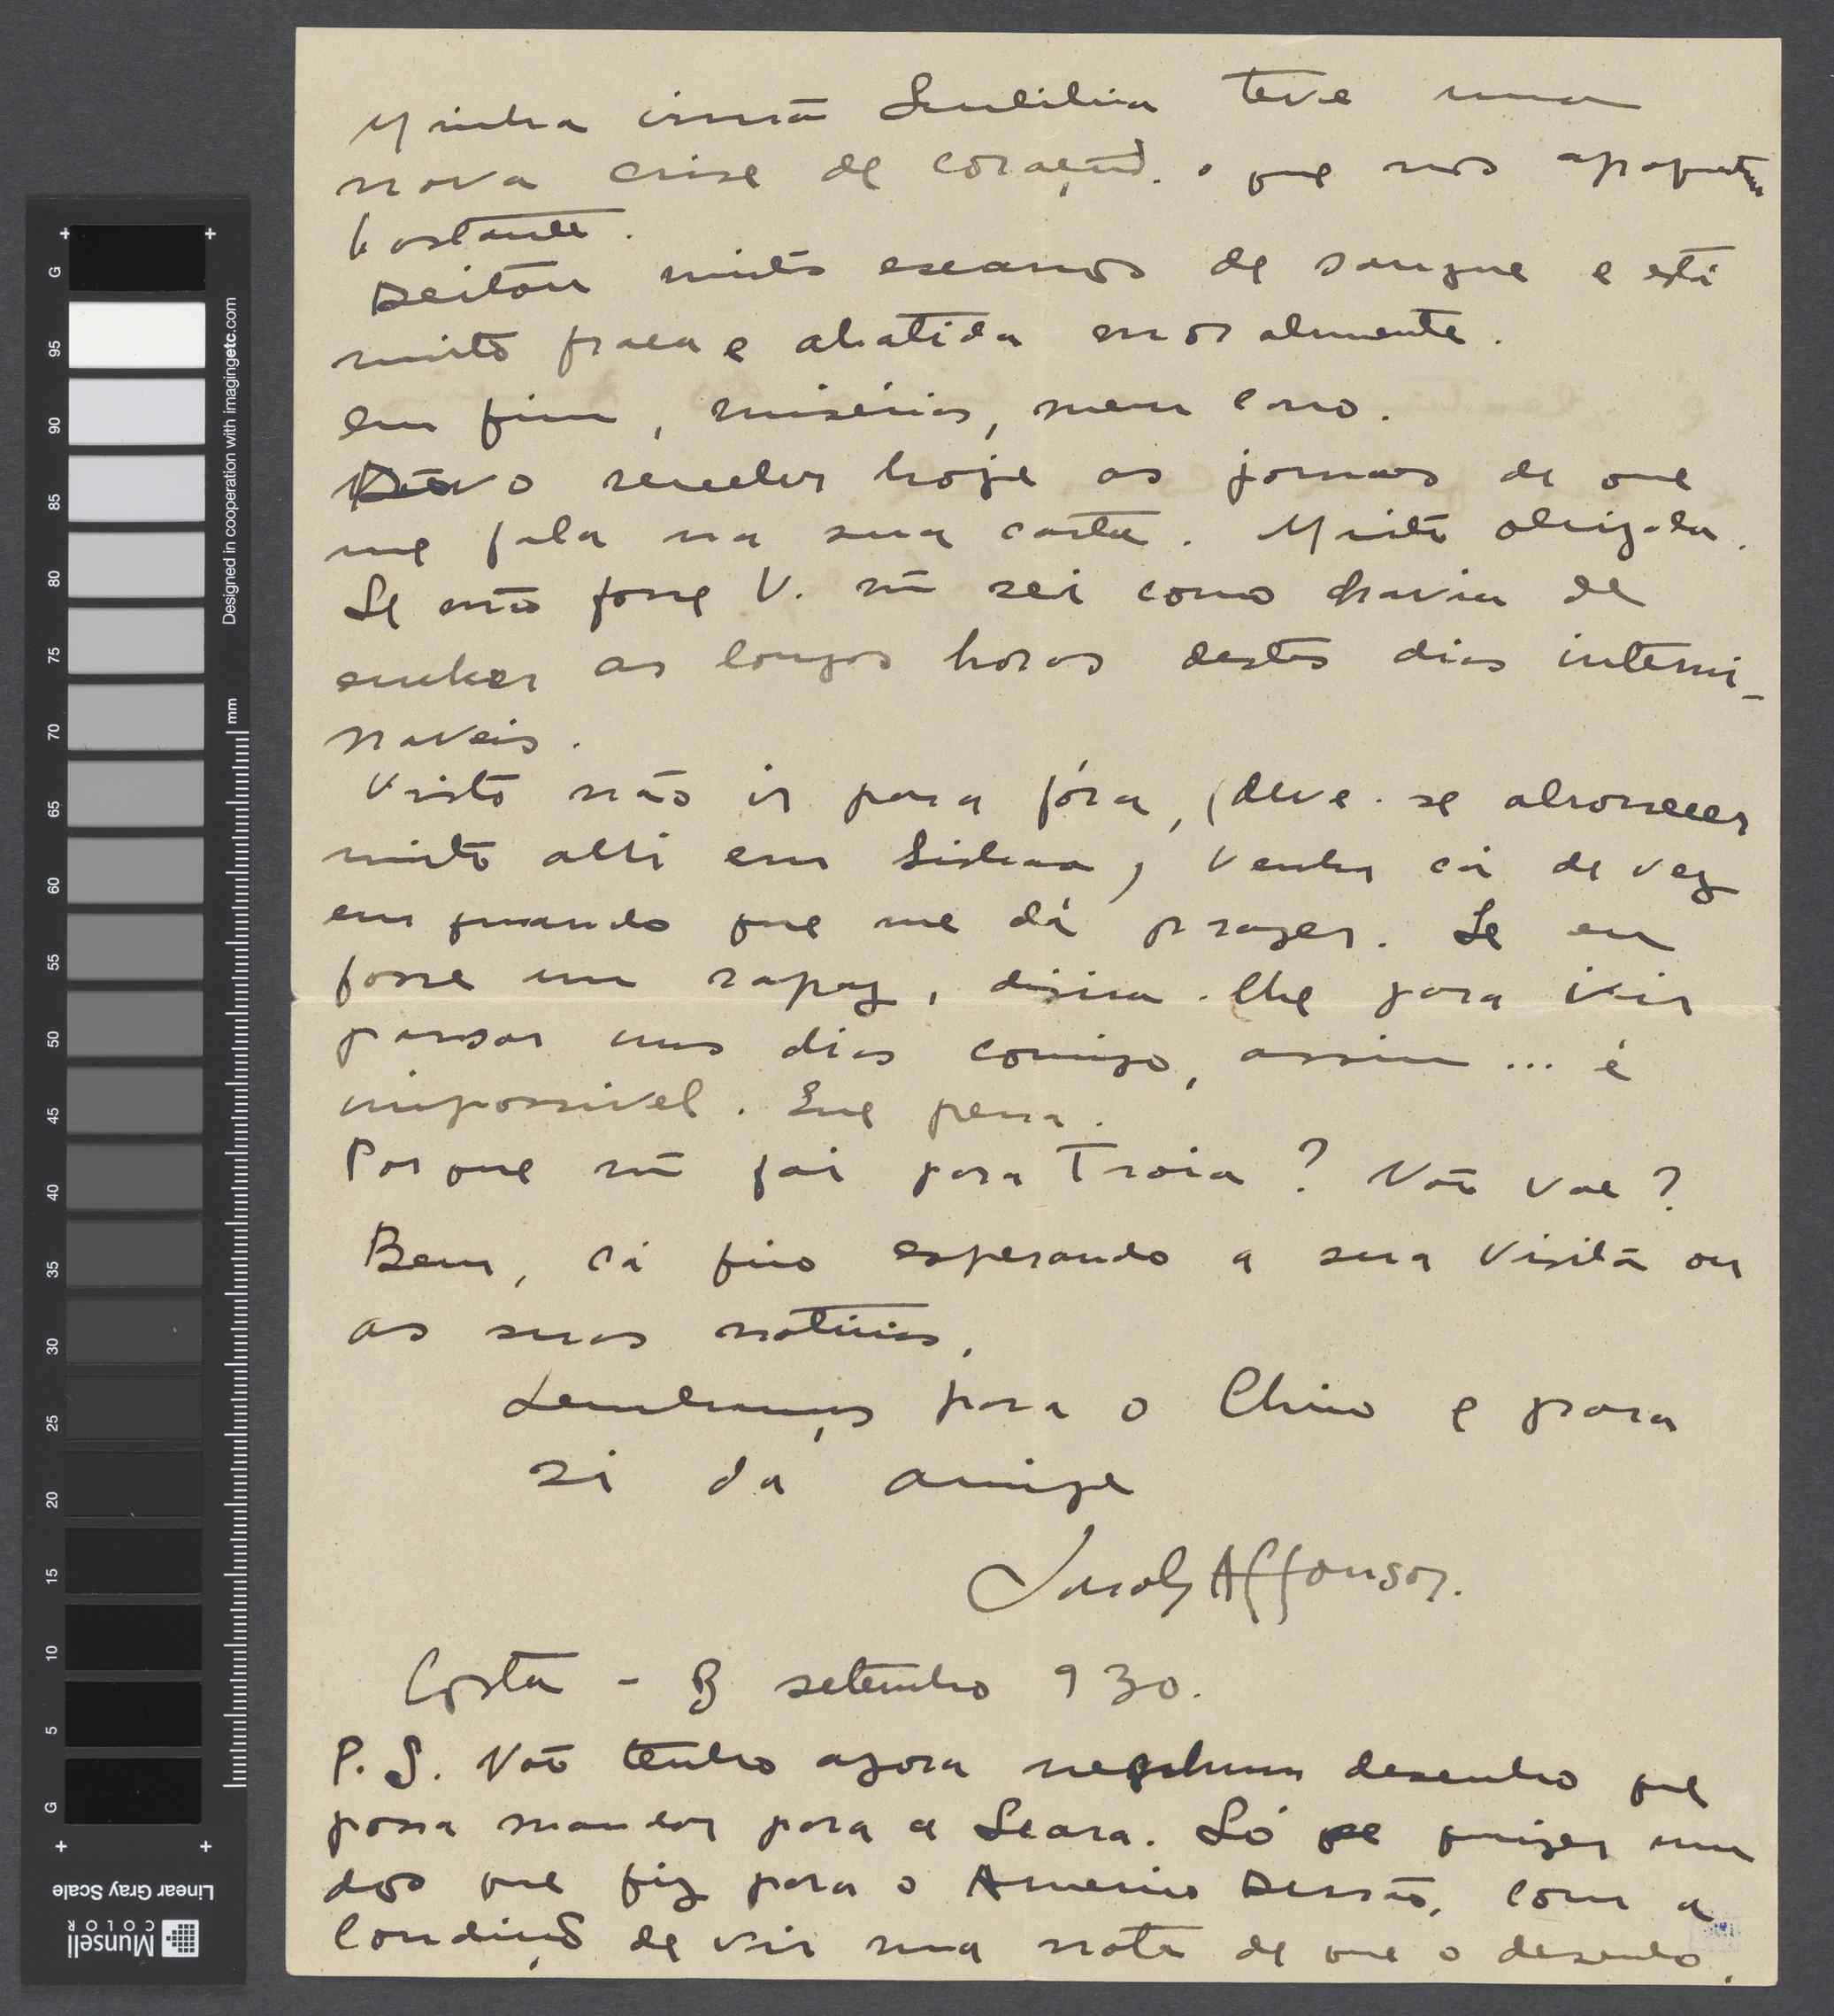 Minha irmã teve uma
nova crise de coração. o que nos apoquentou
bastante.
Deitou muitos escarros de sangue e está
muito fraca e abatida moralmente.
em fim, misérias, meu caro.
Devo receber hoje os jornaes de que
me fala na sua carta. Muito obrigada.
Se não fosse V. nã sei como havia de
encher as longas horas destes dias intermi-
naveis.
Visto não ir para fóra, (deve-se aborrecer
muito alli em Lisboa) venha cá de vez
em quando que me dá prazer. Se eu
fosse um rapaz, diria-lhe para vir
passar uns dias comigo, assim... é
impossivel. Que pena.
Porque nã foi para Troia? Não vae?
Bem, cá fico esperando a sua visita ou
as suas noticias.
Lembranças para o Chico e para
si da amiga
Sarah Affonso.
Costa - 8 setembro 930.
P.S. Não tenho agora nenhum desenho que
possa mandar para a Seara. Só se quizer um
dos que fiz para o Americo Durão, com a
condição de vir uma nota de que o desenho
G 95 90 85 80 75 70 65 60 55 50 45 40 35 30 25 20 15 10 5 G
mm
Designed in cooperation with imagingetc.com
Linear Gray Scale
Munsell
COLOR